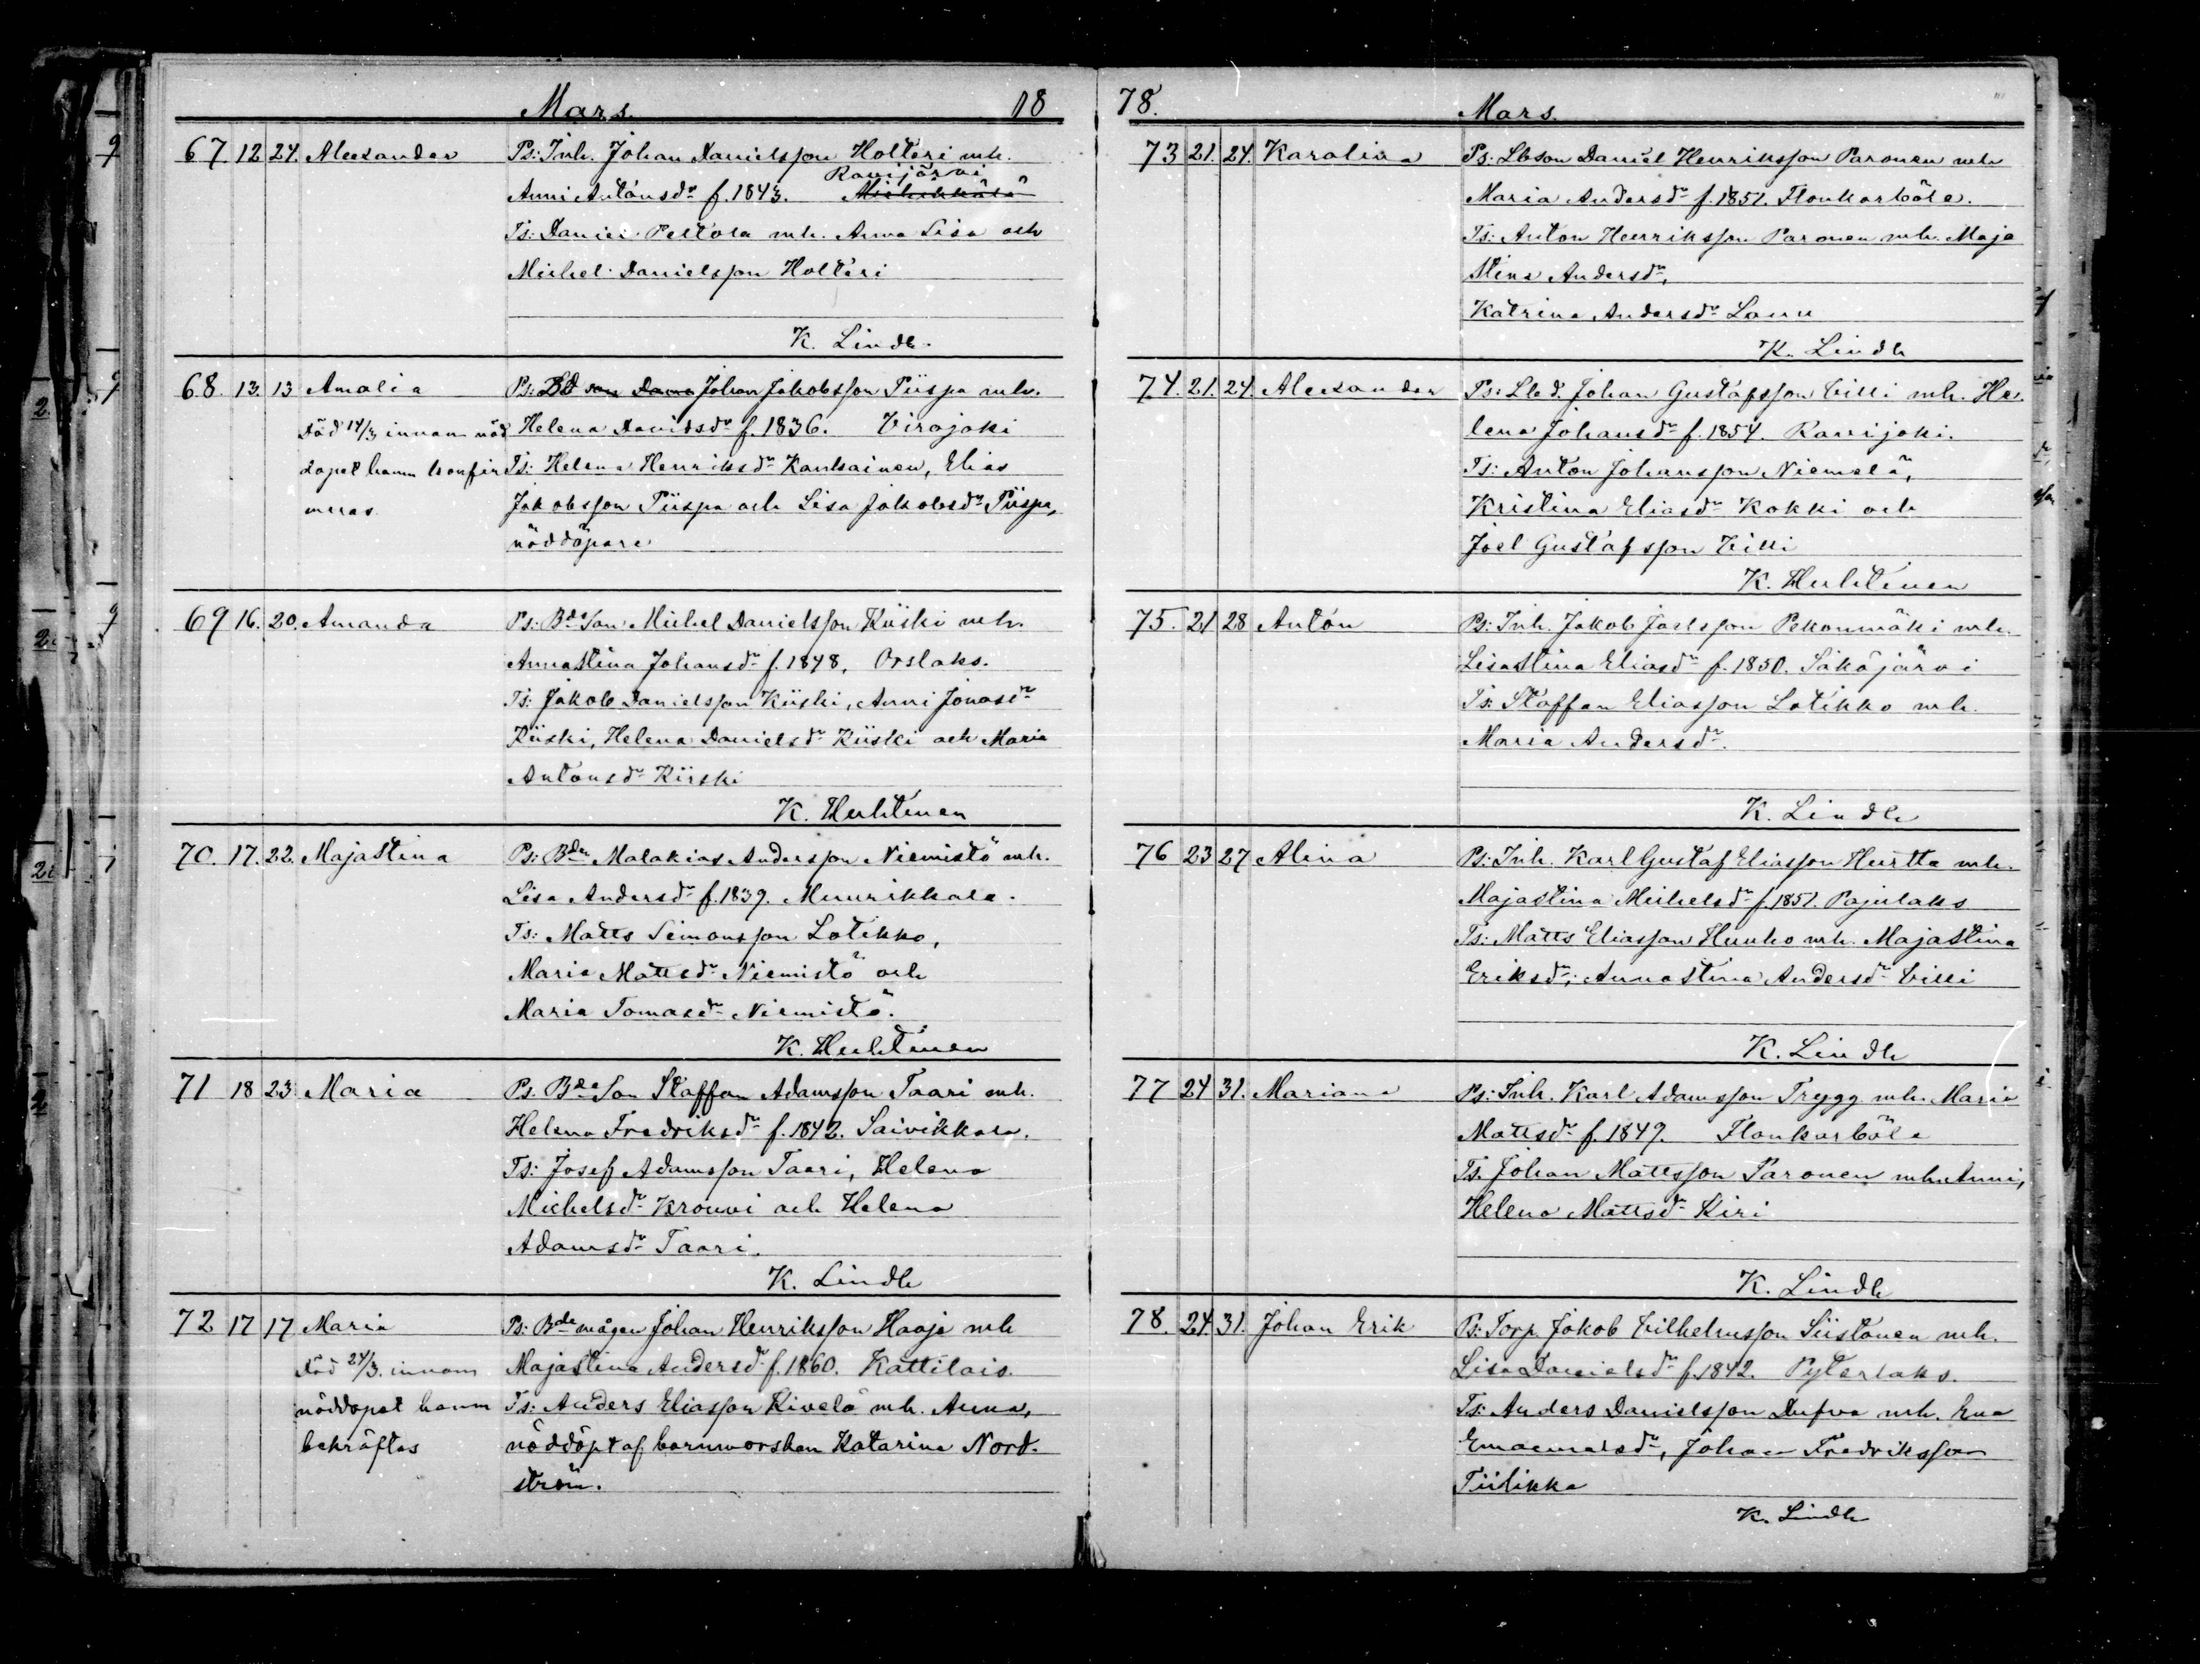 Mars. 18
67 12 24. Alexander Ps: Inh. Johan Danielsson Holteri mh.
Ravijärvi
Anni Antonsdr f. 1843.
Ts: Daniel Peltola mh. Anna Lisa och
Michel Danielsson Holteri
K. Lindh.
68. 13. 13 Amalia Ps: Johan Jakobsson Piispa mh.
Död 14/3 innan nöd Helena Davidsdr f. 1836. Virojoki
dopet hann konfir Ts: Helena Henriksdr Kankainen, Elias
meras Jakobsson Piispa och Lisa Jakobsdr Piispa,
nöddöpare
69 16. 20. Amanda Ps: Bdeson Michel Danielsson Kiiski mh.
Annastina Johansdr f. 1848, Orslaks.
Ts: Jakob Danielsson Kiiski, Anni Jonasdr
Kiiski, Helena Danielsdr Kiiski och Maria
Antonsdr Kiiski
K. Huhtinen
70. 17. 22. Majastina Ps: Bden Malakias Andersson Niemistö mh.
Lisa Andersdr f. 1839. Muurikkala.
Ts: Matts Simonsson Lotikko,
Maria Mattsdr Niemistö och
Maria Tomasdr Niemistö.
K. Huhtinen
71 18 23. Maria Ps. Bdeson Staffan Adamsson Taari mh.
Helena Fredriksdr f. 1842. Saivikkala.
Ts: Josef Adamsson Taari, Helena
Michelsdr Krouvi och Helena
Adamsdr Taari.
K. Lindh
72 17 17 Maria Ps: Bdemågen Johan Henriksson Haaja mh
Död 24/3. innan Majastina Andersdr f. 1860. Kattilais.
nöddopet hann Ts: Anders Eliasson Kivelä mh. Anna,
bekräftas nöddöpt af barnmorskan Katarina Nord-
ström.
78. Mars.
73 21. 24. Karolina Ps: Lbson Daniel Henriksson Paronen mh
Maria Andersdr f. 1851. Flonkarböle.
Ts: Anton Henriksson Paronen mh. Maja
Stina Andersdr,
Katrina Andersdr Lauru
K. Lindh
74. 21. 24. Alexander Ps: Lbd. Johan Gustafsson Villi mh. He-
lena Johansdr f. 1854. Ravijoki.
Ts: Anton Johansson Niemelä,
Kristina Eliasdr Kokki och
Joel Gustafsson Villi
K. Huhtinen
75. 21 28 Anton Ps: Inh. Jakob Joelsson Pekonmäki mh.
Lisastina Eliasdr f. 1850. Säkäjärvi
Ts: Staffan Eliasson Lotikko mh.
Maria Andersdr.
K. Lindh
76 23 27 Alina Ps: Inh. Karl Gustaf Eliasson Hurtta mh.
Majastina Michelsdr f. 1851. Pajulaks
Ts: Matts Eliasson Hunko mh. Majastina
Eriksdr, Annastina Andersdr Villi
K. Lindh
77 24 31. Mariana Ps: Inh. Karl Adamsson Trygg mh. Maria
Mattsdr f. 1849. Flonkarböle
Ts. Johan Mattsson Paronen mh. Anni,
Helena Mattsdr Kiri
K. Lindh
78. 24. 31. Johan Erik Ps: Torp. Jakob Vilhelmsson Siistonen mh.
Lisa Danielsdr f. 1842. Pyterlaks.
Ts: Anders Danielsson Dufva mh. Eva
Emanuelsdr, Johan Fredriksson
Tiilikka
K. Lindh